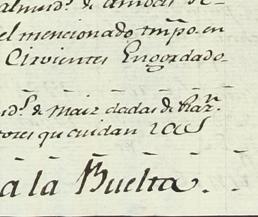 almud.s de ambas se-
el mencionado tmpo. en
Cirvientes Engordado-
ud.s de maiz dadas de Rax.n
tores que cuidan las
a la Buelta.